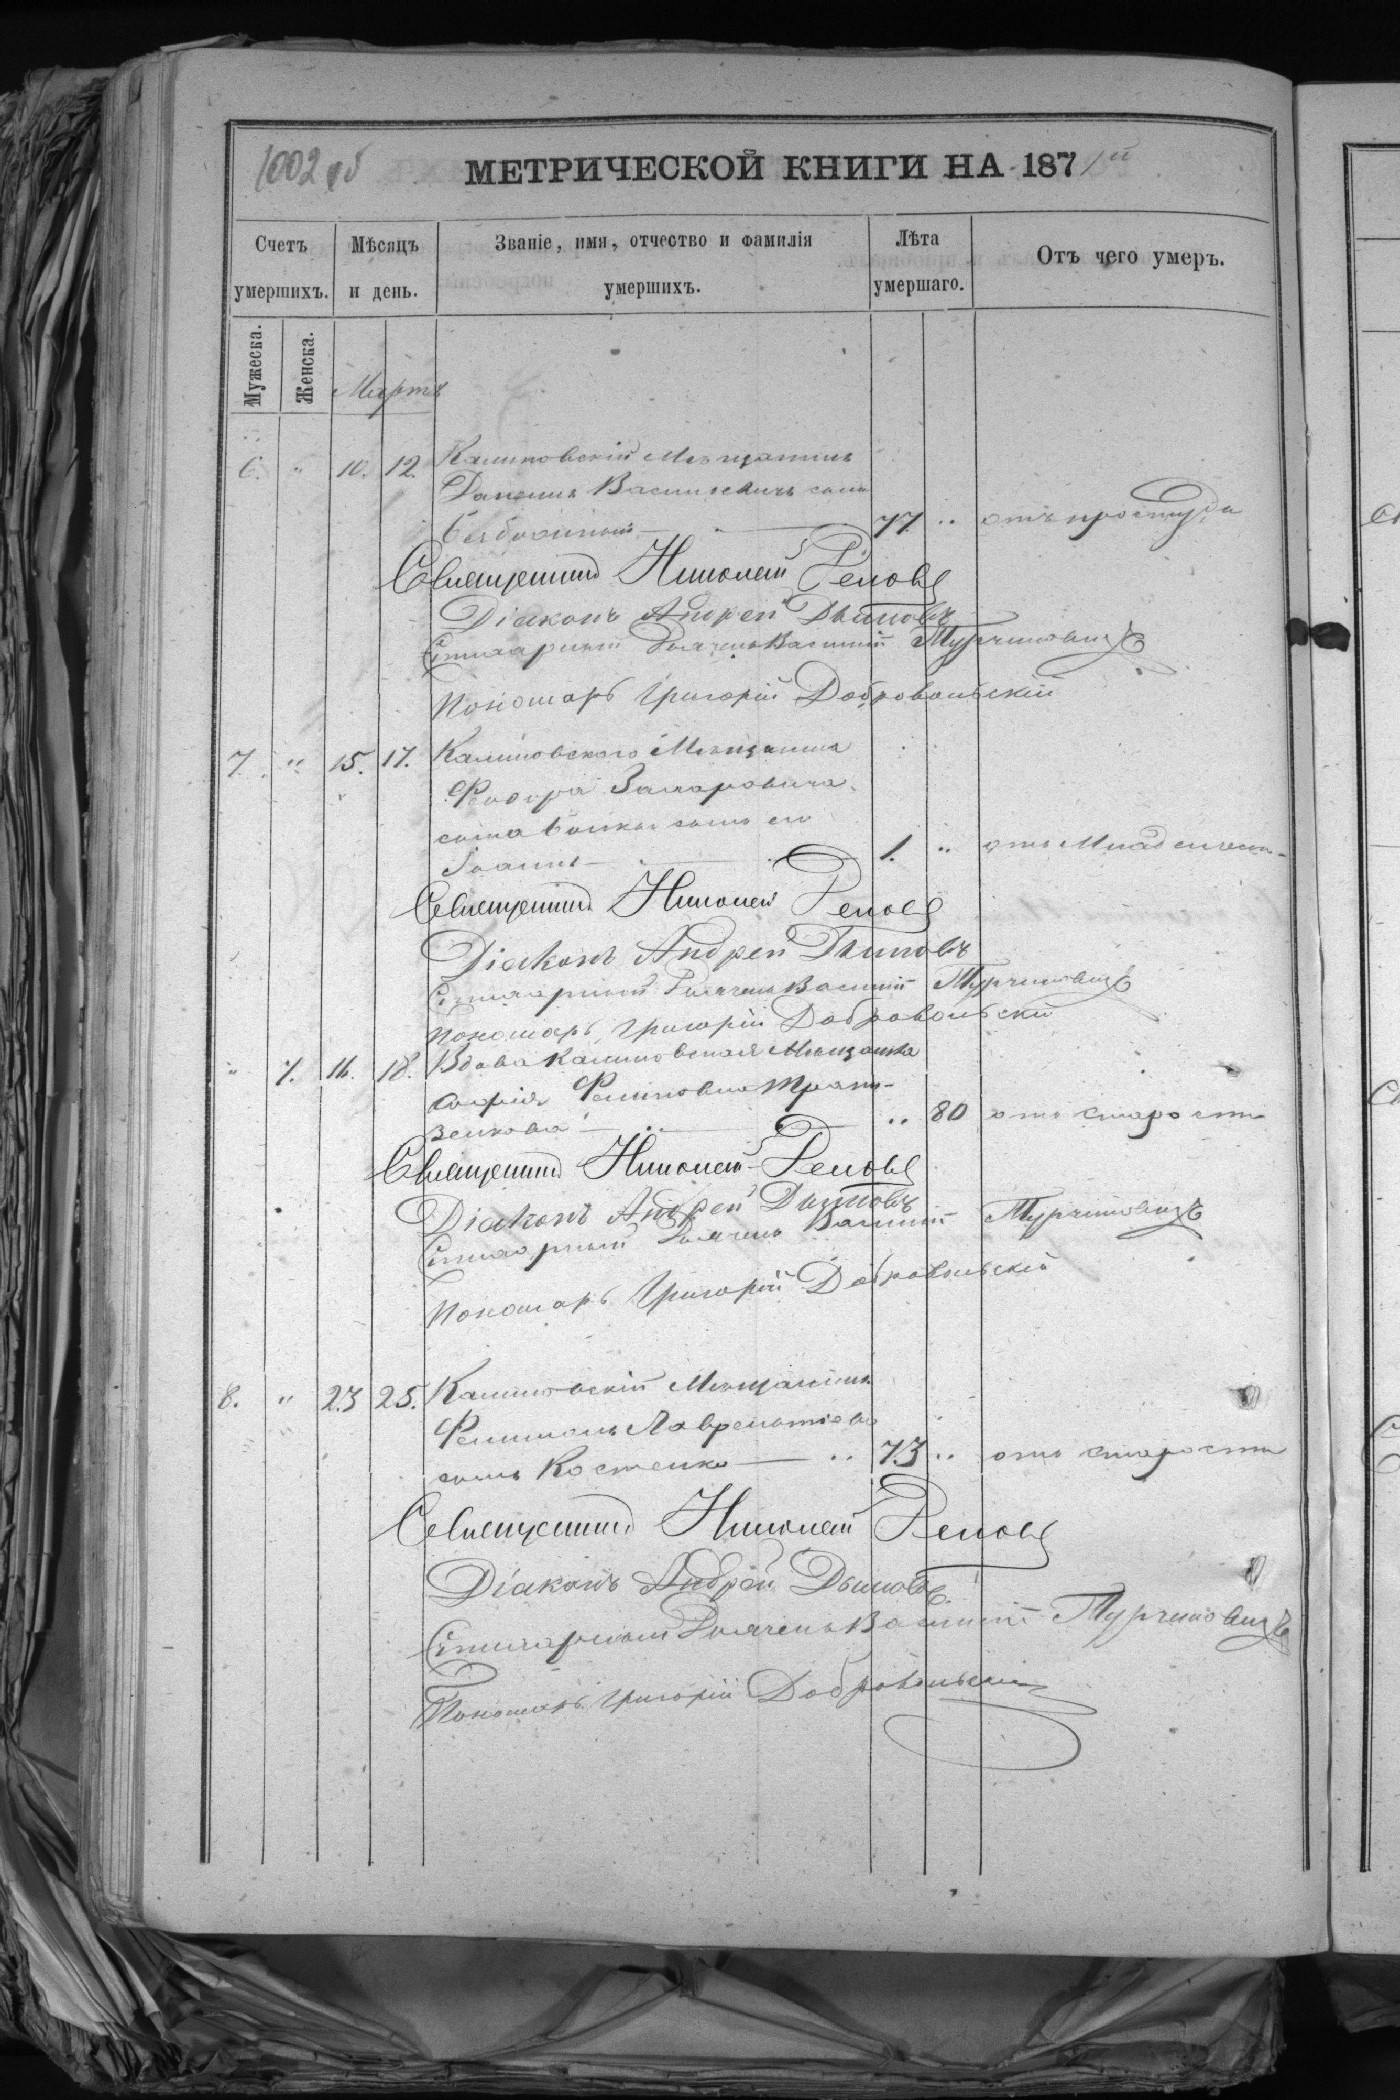 1002 об
МЕТРИЧЕСКОЙ КНИГИ НА 1871й
Счетъ умершихъ.
Мѣсяцъ и день.
Званіе, имя, отчество и фамилія умершихъ.
Лѣта умершаго.
Отъ чего умеръ.
Мужеска.
Женска.
Мартъ
6. " 10. 12. Калиновскій Мѣщанинъ
Данiилъ Васильевичъ сынъ
77. " отъ простуды
Священникъ Николай
Діаконъ Андрей Дымовъ
Василій Турчиновичъ
Пономарь Григорій Добровольскій
7. " 15. 17. Калиновскаго Мѣщанина
Феодора Захаровича
сына сынъ его
Іоаннъ 1. " отъ
Священникъ Николай
Діаконъ Андрей Дымовъ
Василій Турчиновичъ
Пономарь Григорій Добровольскій
" 7. 16. 18. Вдова Калиновская Мѣщанка
Софія
" 80 отъ старости
Священникъ Николай
Діаконъ Андрей Дымовъ
Василій Турчиновичъ
Пономарь Григорій Добровольскій
8. " 23 25. Калиновскій Мѣщанинъ
Филимонъ Лаврентіевъ
сынъ Костенко 73 " отъ старости
Священникъ Николай
Діаконъ Андрей Дымовъ
Василій Турчиновичъ
Пономарь Григорій Добровольскій